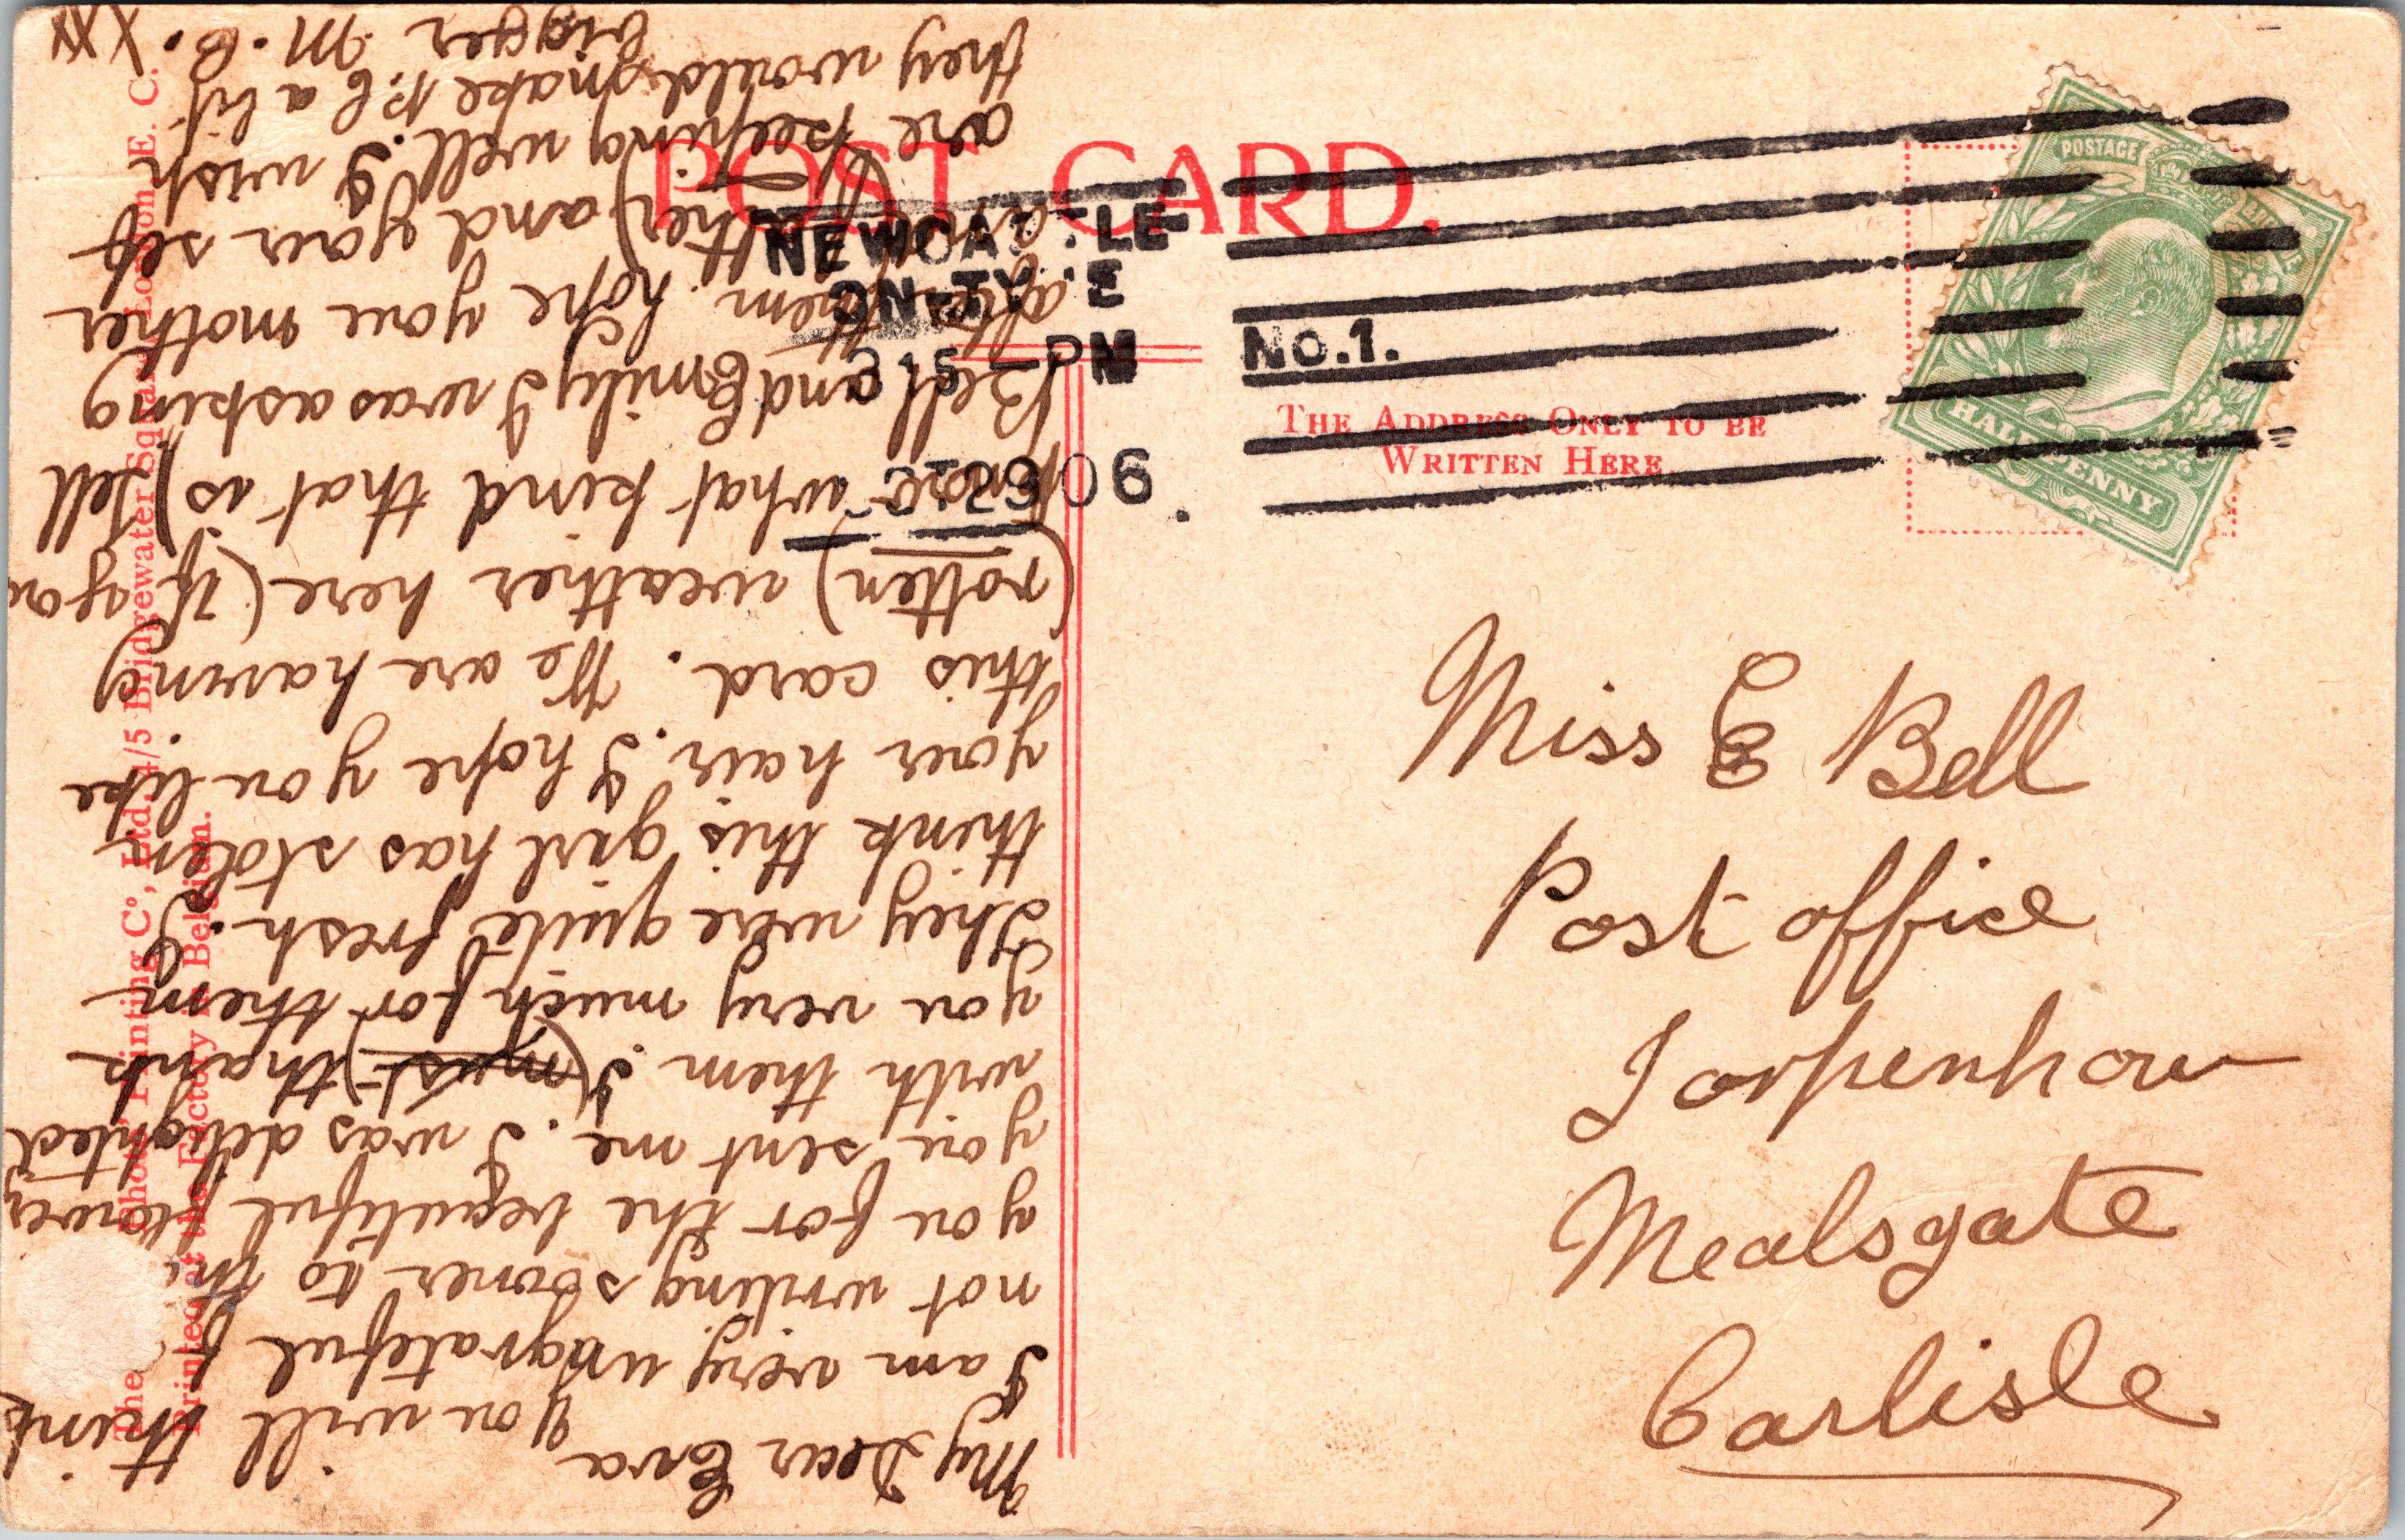 POST CARD.
NEWCA TLE
ON-TY E
3 15 PM
NO.1.
06
THE ADDRESS ONLY TO BE
WRITTEN HERE
POSTAGE
HALFPENNY
Miss E Bell
Post office
Torpenhow
Mealsgate
Carlisle
My Dear Eva
you will think
I am very ungrateful f
not writing sooner to th
you for the beautiful flower
you sent me. I was delighted
with them. I (must) thank
you very much for them
They were quite fresh. I
think this girl has stolen
your hair. I hope you like
this card. We are having
(rotten) weather here (if you
know what kind that is) Tell
Bell and Emily I was asking
after them. hope you mother
and (ther) and your self
are keeping well. I wish
they would make P.C a bit
bigger M. B. XXX
The Photo Printing Co, Ltd, 4/5 Bridgewater Square, London, E. C.
Printed at the Factory in Belgium.